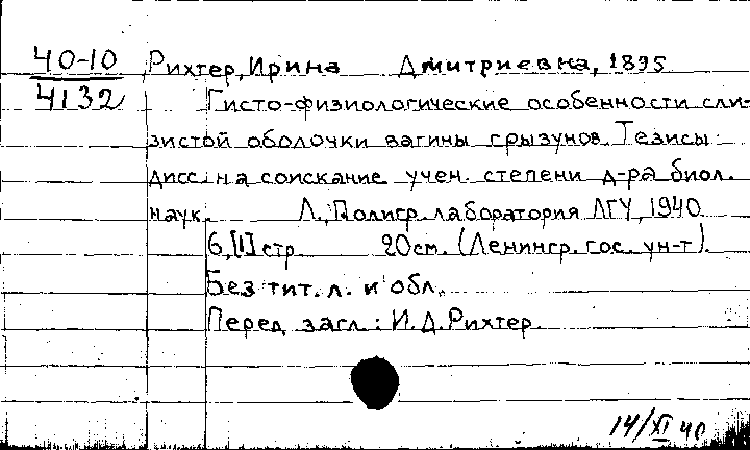 40-10
4132
Рихтер, Ирина Дмитриевна, 1895
Гисто-физиологические особенности сли-
зистой оболочки вагины грызунов. Тезисы
дисс. на соискание учен. степени д-ра биол.
наук. Л., Полигр. лаборатория ЛГУ, 1940
6,[1] стр 20см. (Ленингр. гос. ун-т).
Без тит. л. и обл.
Перед загл.: И.Д.Рихтер.
14/XI 40